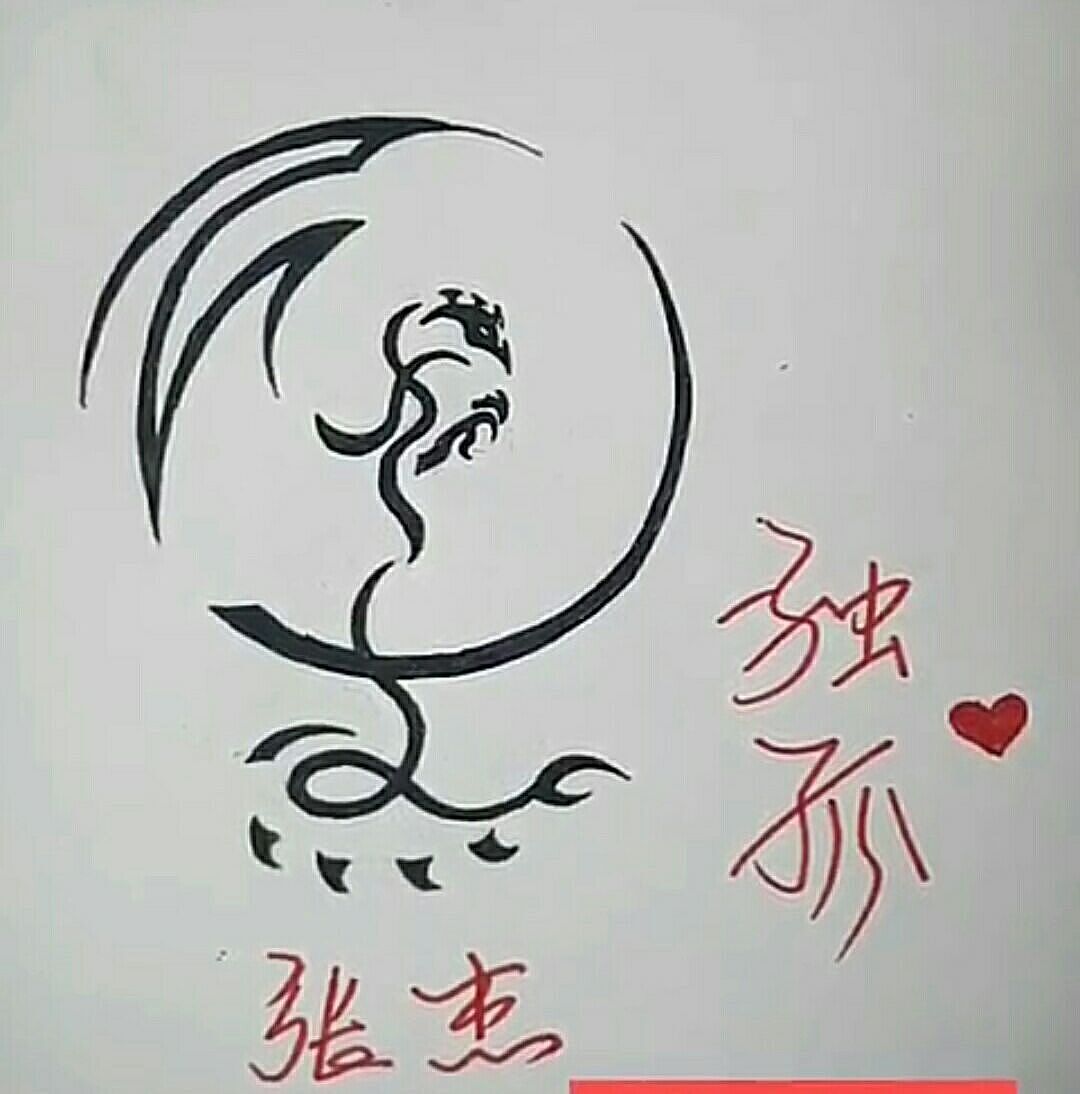 独
孤
张杰